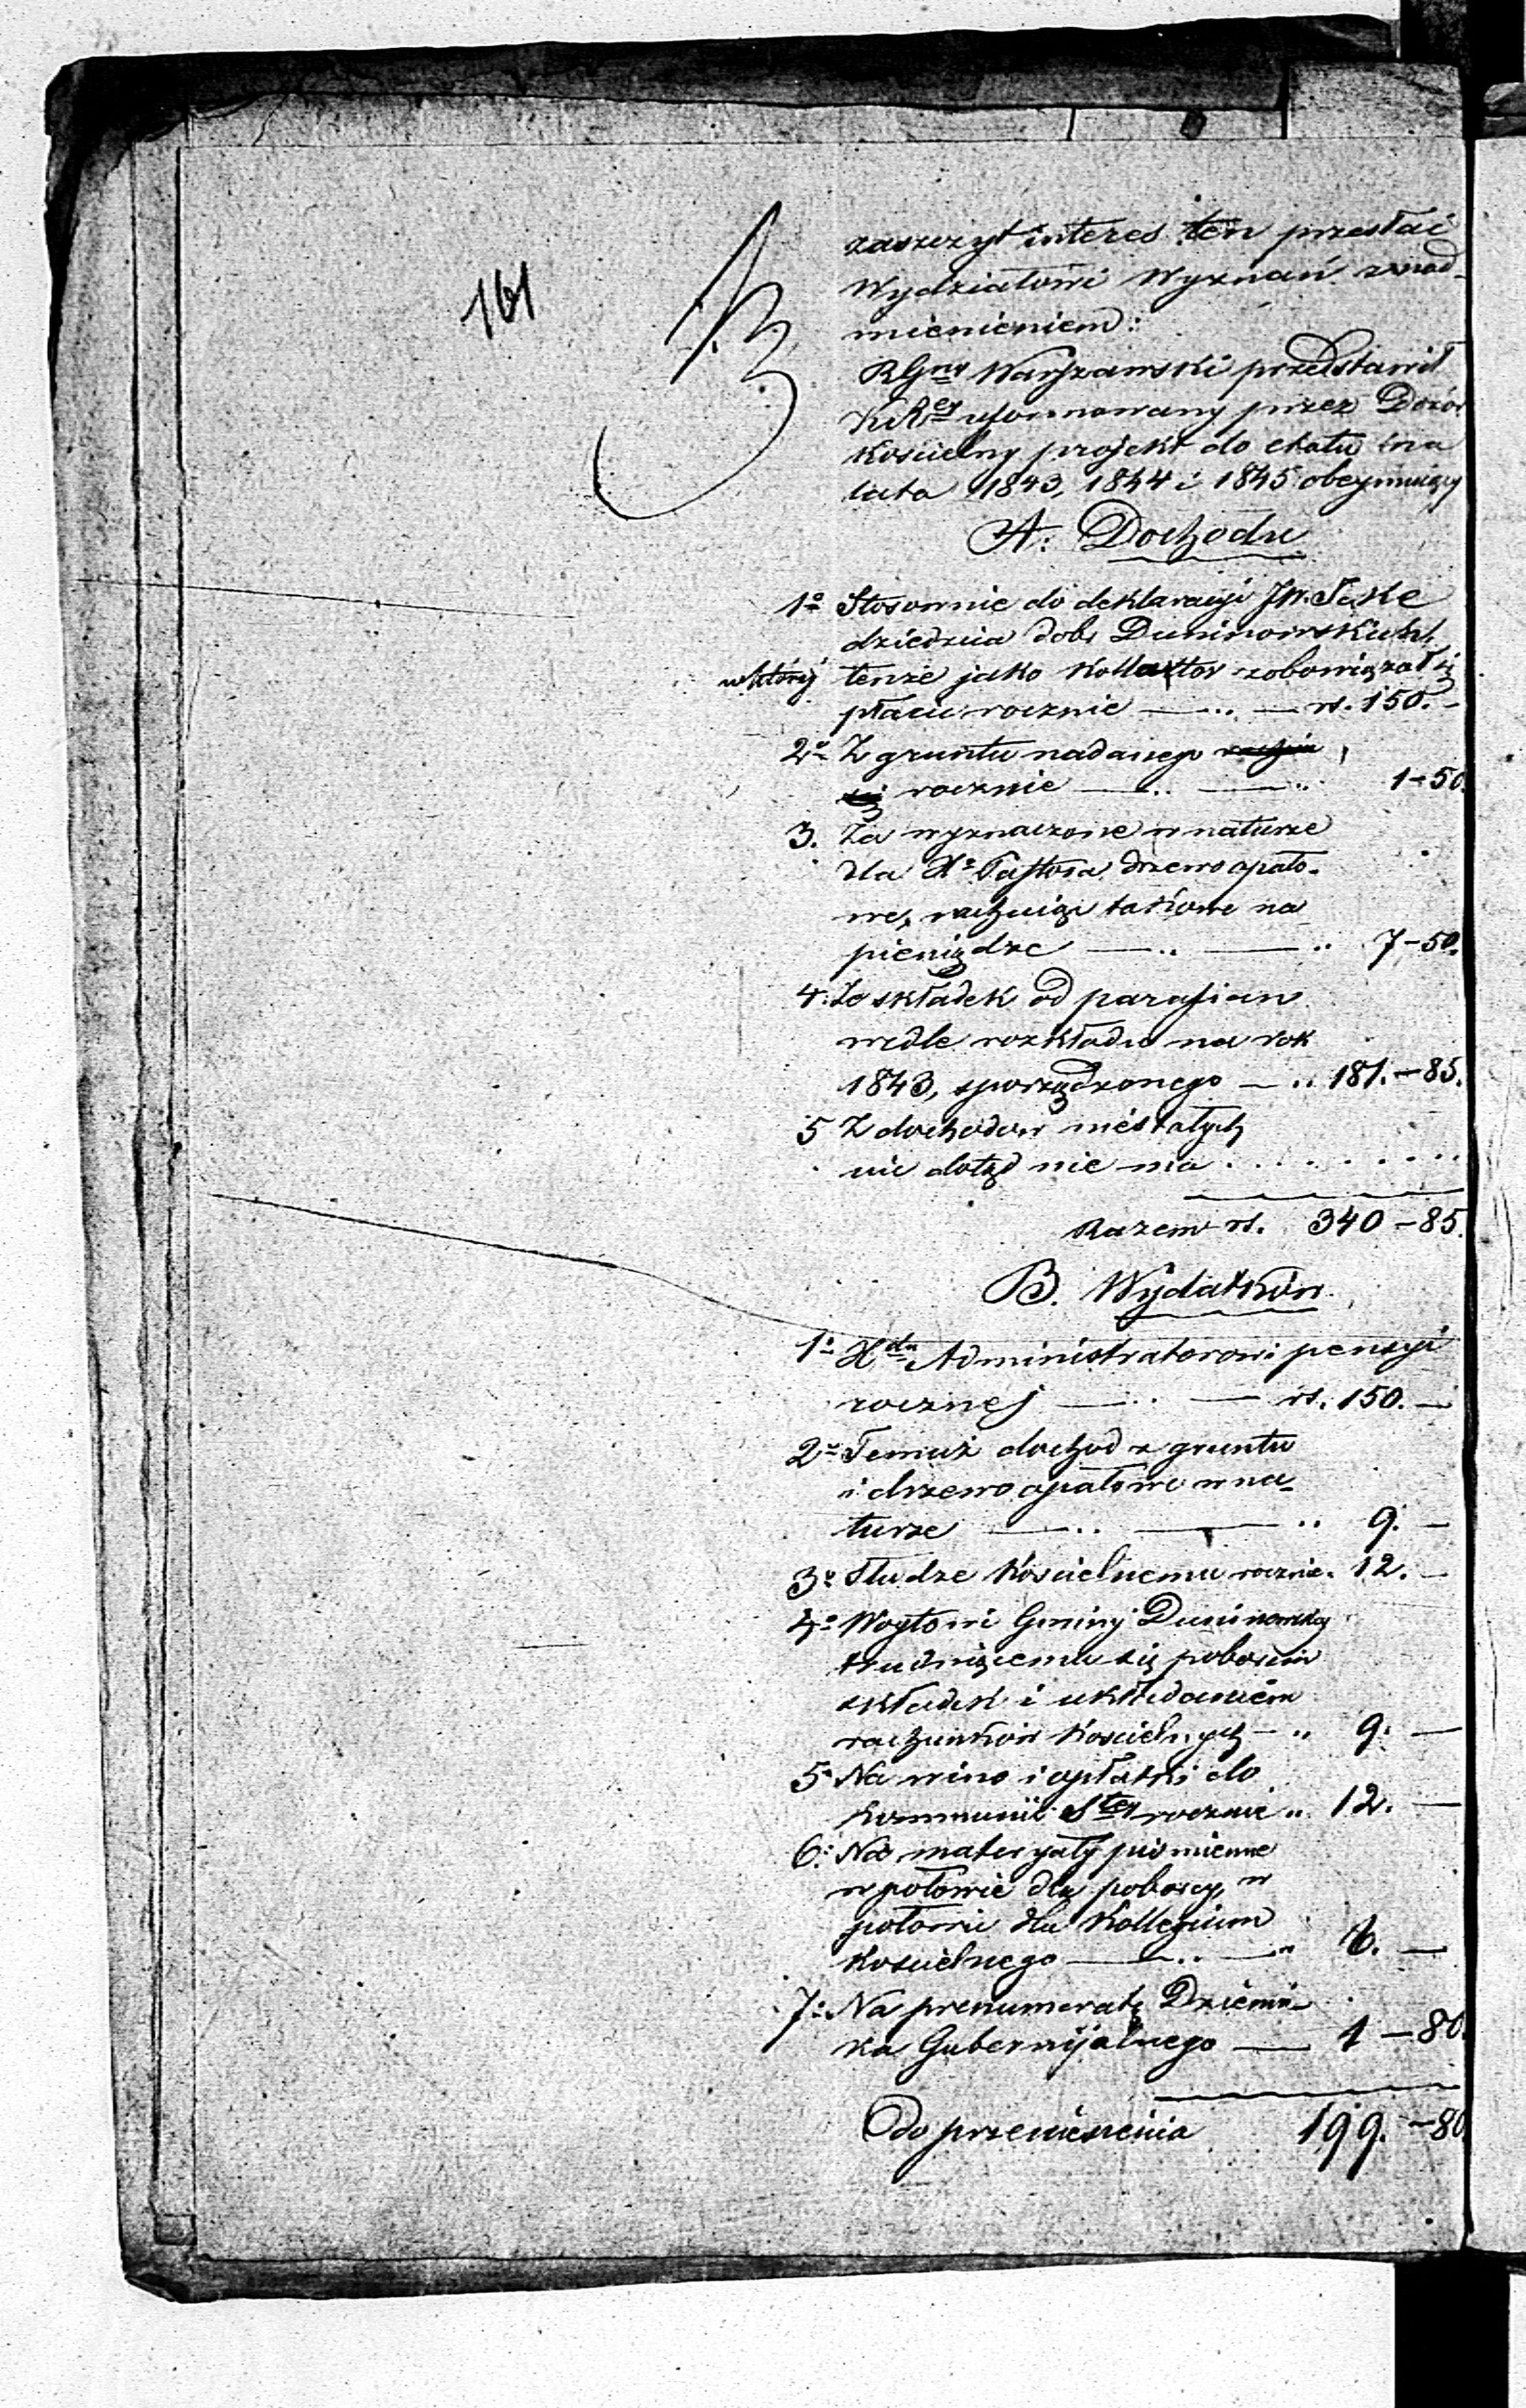 161
zaszczyt interes ten przesłać
Wydziałowi Wyznań z nad-
mienieniem:
RGny Warszawski przedstawił
uformowany przez Dozór
Kościelny projekt do etatu na
lata 1843, 1844 i 1845 obeymuiący
A. Dochodu
1o Stosownie do deklaracyi JW.
dziedzica dobr Duninowskich,
w którey tenże jako Kollator zobowiązał się
płacić rocznie — rs. 150. -
2o Z gruntu nadanego
rocznie — 1-50.
3. Za wyznaczone w naturze
dla Xa Pastora drzewo opało-
we, rachuiąc takowe na
pieniądze — 7-50.
4. Ze składek od parafian
wedle rozkładu na rok
1843, sporządzonego — 181.-85.
5 Z dochodow niestałych
nic dotąd nie ma . . . . . . . .
Razem rs. 340-85.
B. Wydatków
1o Administratorowi pensyi
rocznej — rs. 150. —
2o Temuż dochod z gruntu
i drzewo opałowe w na-
turze — 9. —
3o Słudze Kościelnemu rocznie. 12. —
4o Woytowi Gminy
trudniącemu się poborem
składek i układaniem
rachunków Kościelnych — 9. —
5o Na wino i opłatki do
Kommunii Stey rocznie „ 12. —
6o Na materyały piśmienne
w połowie dla poborcy, w
połowie dla Kollegium
Kościelnego — 6. —
7o Na prenumeratę Dzienni-
ka Gubernijalnego — 1-80.
Do przeniesienia 199.-80